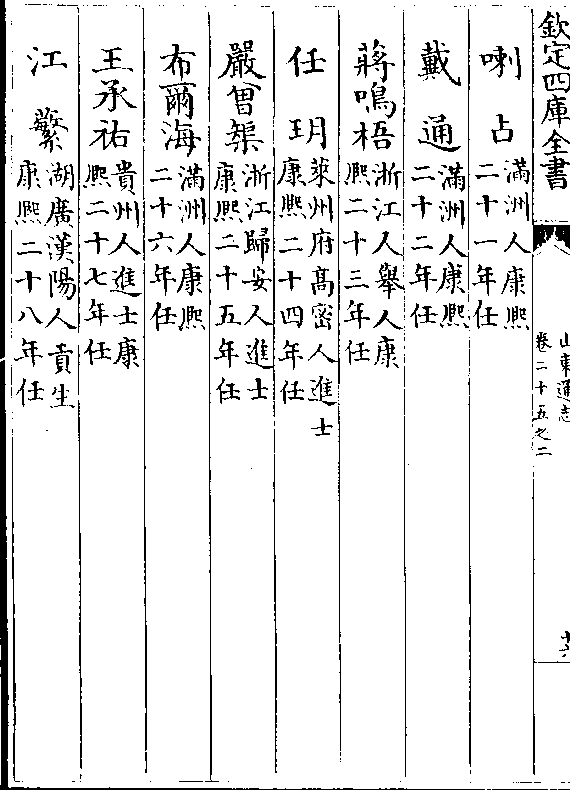 欽定四庫全書
山東通志
卷二十五之二
喇占 滿洲人康熙二十一年任
戴通 滿洲人康熙二十二年任
蔣鳴梧 浙江人舉人康熙二十三年任
任玥 萊州府髙密人進士康熙二十四年任
嚴曾榘 浙江歸安人進士康熙二十五年任
布爾海 滿洲人康熙二十六年任
王承祐 貴州人進士康熙二十七年任
江蘩 湖廣漢陽人貢生康熙二十八年任